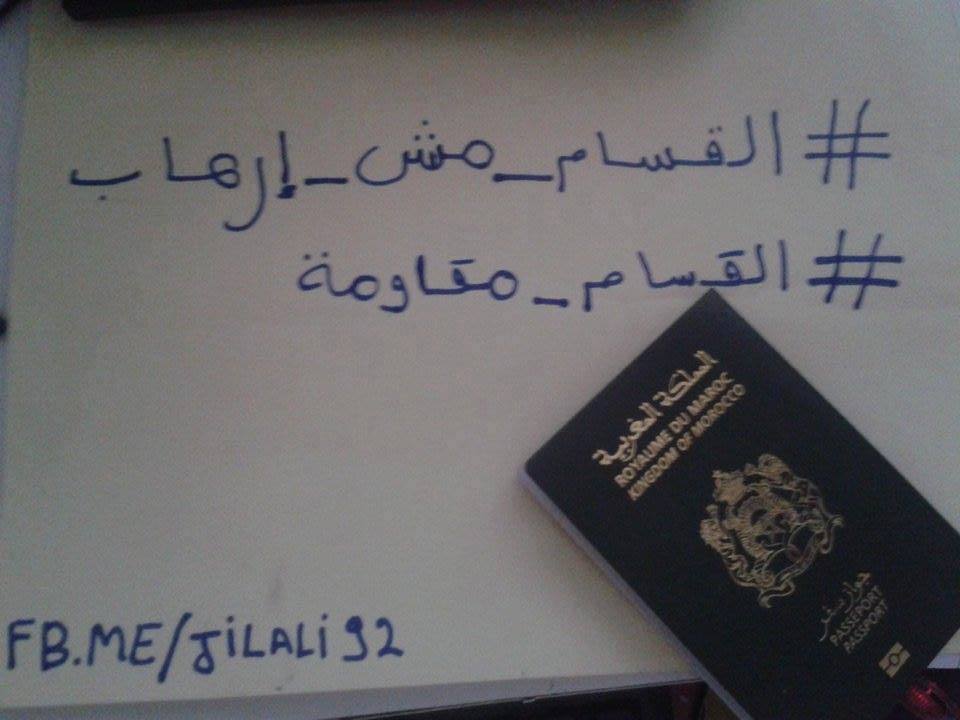 #القسام_مش_إرهاب
#القسام_مقاومة
المملكة المغربية
ROYAUME DU MAROC
KINGDOM OF MOROCCO
جواز سفر
PASSEPORT
PASSPORT
FB.ME/JiLALi92